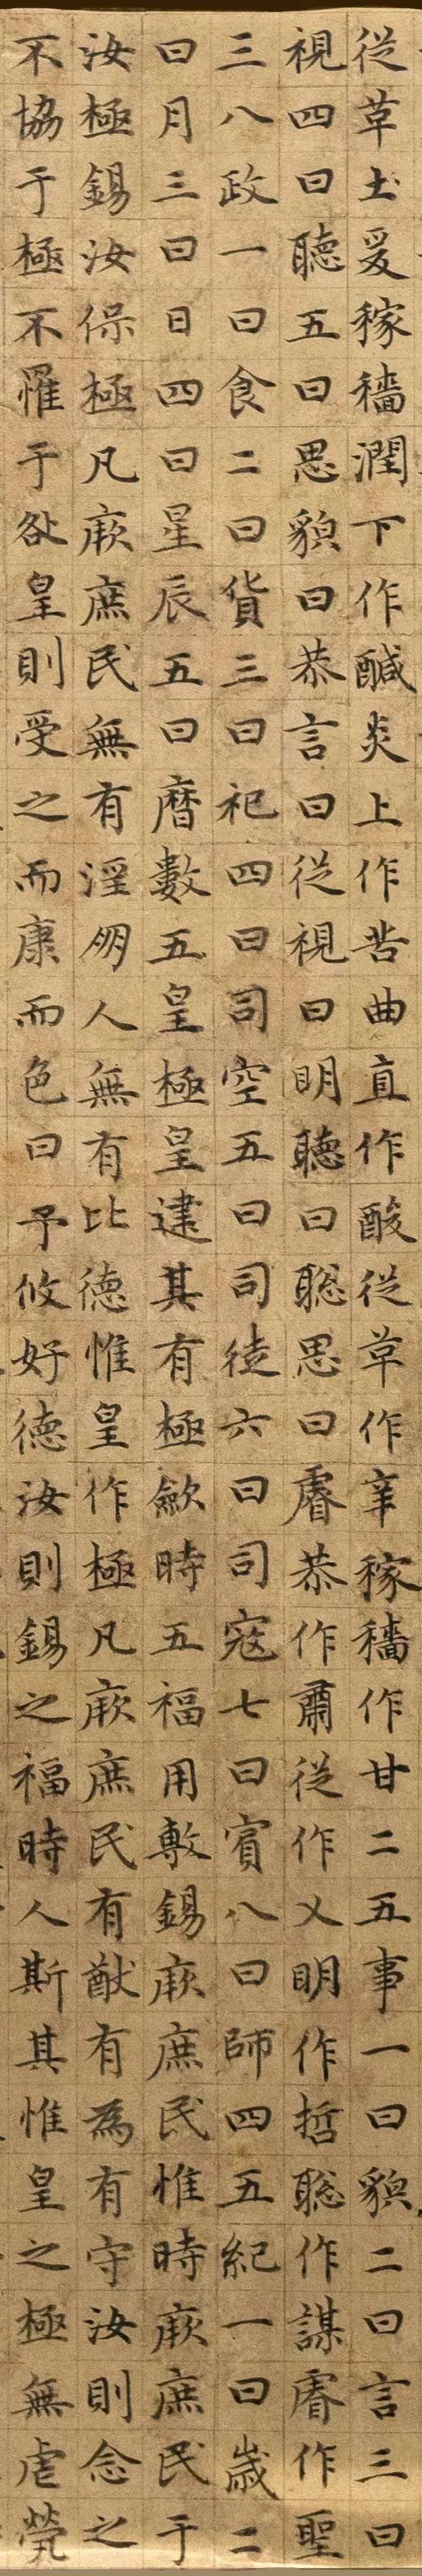 從革土爰稼穡潤下作鹹炎上作苦曲直作酸從革作辛稼穡作甘二五事一曰貌二曰言三曰
視四曰聽五曰思貌曰恭言曰從視曰明聽曰聦思曰睿恭作肅從作乂明作哲聦作謀睿作聖
三八政一曰食二曰貨三曰祀四曰司空五曰司徒六曰司寇七曰賓八曰師四五紀一曰歲二
曰月三曰日四曰星辰五曰曆數五皇極皇建其有極歛時五福用敷錫厥庶民惟時厥庶民于
汝極錫汝保極凡厥庶民無有淫朋人無有比德惟皇作極凡厥庶民有猷有為有守汝則念之
不協于極不罹于咎皇則受之而康而色曰予攸好德汝則錫之福時人斯其惟皇之極無虐煢